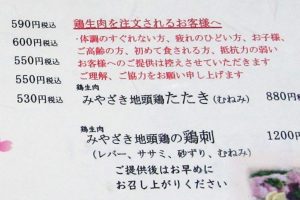 590円税込
600円税込
550円税込
550円税込
530円税込
鶏生肉を注文されるお客様へ
・体調のすぐれない方、疲れのひどい方、お子様、
ご高齢の方、初めて食される方、抵抗力の弱い
お客様へのご提供は控えさせていただきます
ご理解、ご協力をお願い申し上げます
鶏生肉
みやざき地頭鶏たたき(むねみ)
880円税込
鶏生肉
みやざき地頭鶏の鶏刺
1200円
(レバー、ササミ、砂ずり、むねみ)
ご提供後はお早めに
お召し上がりください